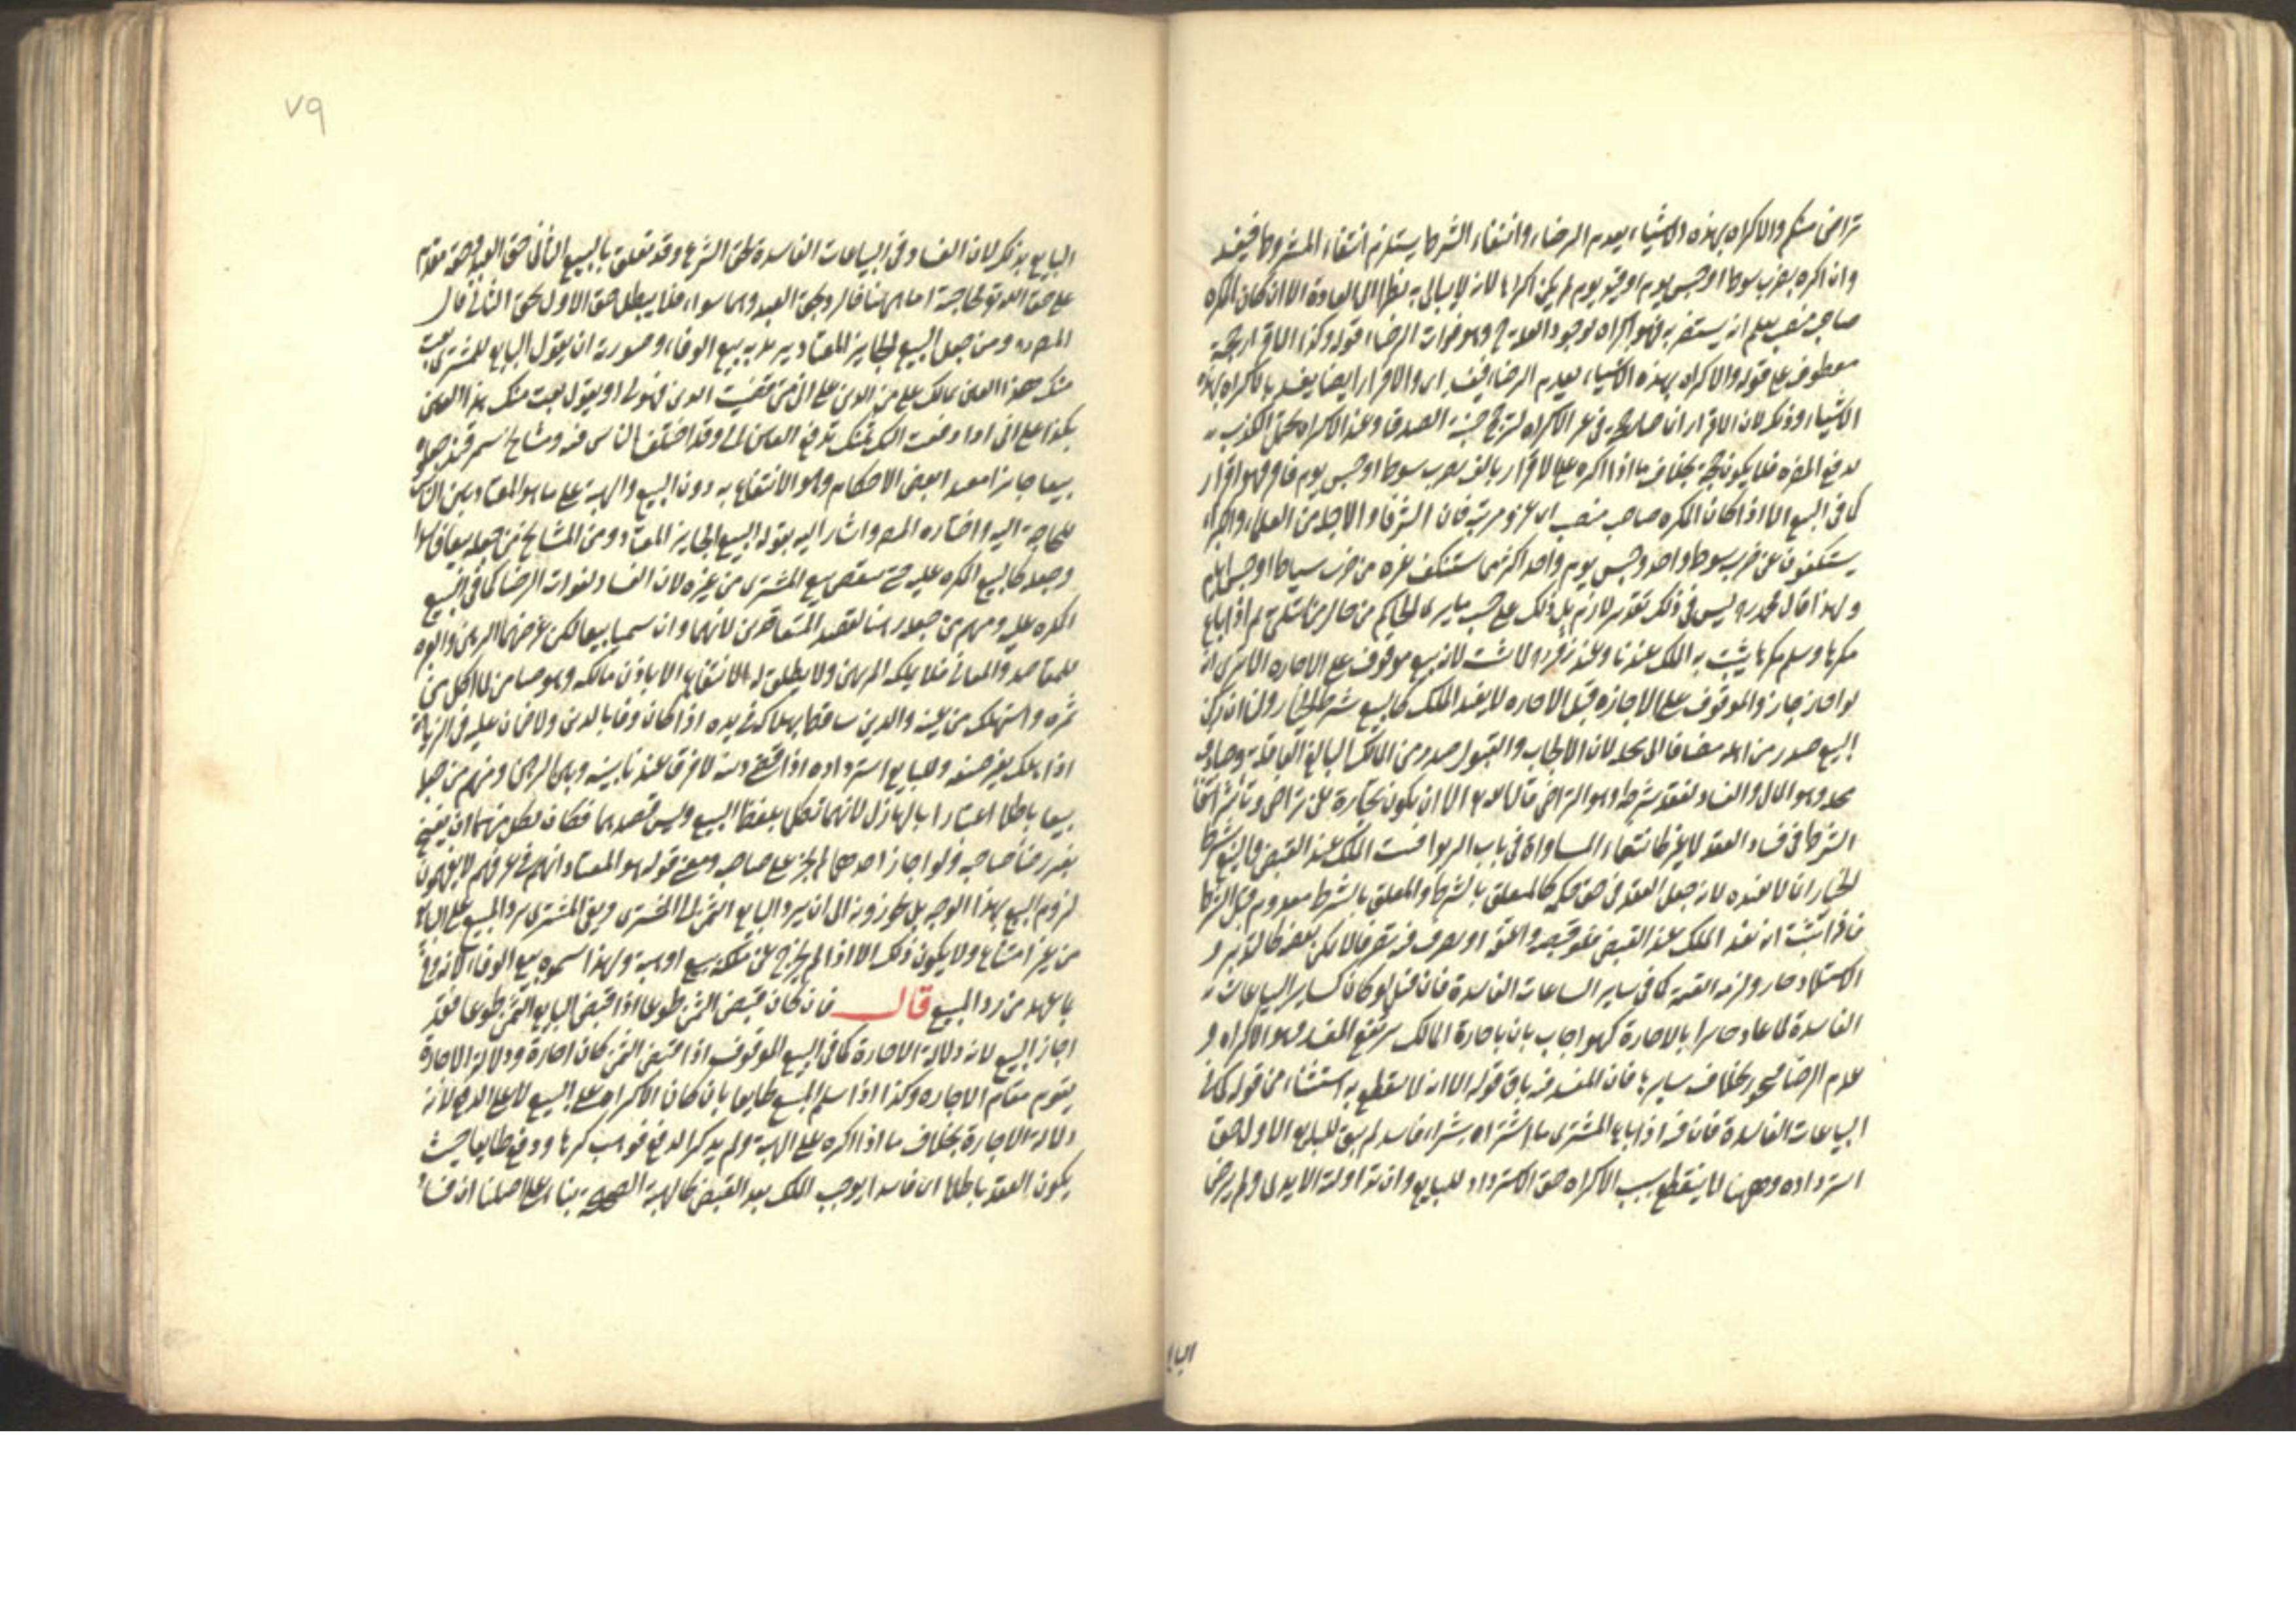 تراض منكم والاكراه بهذه الاشياء يعدم الرضاء وانتفاء الشرط يستلزم انتفاء المشروط فيفسد
وان اكره بضرب سوط او حبس يوم او قيد يوم لم يكن اكراها لانه لا يبالى به نظرا الى العادة الا ان كان المكره
صاحب منصب يعلم انه يستضر به فهو اكراه لوجود العلة وهو فوات الرضاء قوله وكذا الاقرار حجة
معطوف على قوله والاكراه بهذه الاشياء يعدم الرضاء فيفسد اى والاقرار ايضا يفسد بالاكراه بهذه
الاشياء وذكر لان الاقرار انما صار حجة فى غير الاكراه لترجح جنبة الصدق وعند الاكراه يحتمل الكذب
لدفع المضرة فلا يكون حجة بخلاف ما اذا اكره على الاقرار بالف بضرب سوط او حبس يوم فاقر فهو اقرار
كما فى البيع الا اذا كان المكره صاحب منصب اى عز ومرتبة فان الشرفاء والاجلة من العلماء والكبراء
يستنكفون عن ضرب سوط واحد وحبس يوم واحد اكثر مما يستنكف غيره من ضرب سياط او حبس ايام
ولهذا قال محمد ره ليس فى ذلك تقدير لازم بل ذلك على حسب ما يرى الحاكم من حال من ابتلى به ثم اذا باع
مكرها وسلم مكرها يثبت به الملك عندنا وعند زفر ره لا يثبت لانه بيع موقوف على الاجازة الا ترى انه
لو اجاز جاز والموقوف على الاجازة قبل الاجازة لا يفيد الملك كالبيع بشرط الخيار ولنا ان ركن
البيع صدر من اهله مضافا الى محله لان الايجاب والقبول صدر من المالك البالغ العاقل وصادف
محله وهو المال والفساد لفقد شرطه وهو التراضى قال الله تع الا ان يكون تجارة عن تراض وتأثير انتفاء
الشرط فى فساد العقد لا غير كانتفاء المساواة فى باب الربوا فيثبت الملك عند القبض والبيع بشرط
الخيار انما لا يفيده لانه جعل العقد فى حق حكمه كالمعلق بالشرط والمعلق بالشرط معدوم قبل الشرط
فاذا ثبت انه يفيد الملك عند القبض فلو قبضه واعتق او تصرف فيه تصرفا لا يمكن نقضه كالتدبير و
الاستيلاد جاز ولزمه القيمة كما فى سائر البياعات الفاسدة فان قيل لو كان كسائر البياعات
الفاسدة لما عاد جائزا بالاجازة كهو اجاب بان باجازة المالك يرتفع المفسد وهو الاكراه و
عدم الرضا فيجوز بخلاف سايرها فان المفسد فيه باق قوله الا انه لا ينقطع به استثناء من قوله كما فى
البياعات الفاسدة فان فيه اذا باع المشترى ما اشتراه بشراء فاسد لم يبق للبايع الاول حق
استرداده وههنا لا ينقطع بسبب الاكراه حق الاسترداد للبايع وان تداولته الايدى ولم يرض
البايع
٧٩
البايع بذلك لان الفساد فى البياعات الفاسدة لحق الشرع وقد تعلق بالبيع الثانى حق العبد وحقه مقدم
على حق الله تع لحاجته اما ههنا فالرد لحق العبد وهما سواء فلا يبطل حق الاول لحق الثانى قال
المص ره ومن جعل البيع الجايز المعتاد يريد به بيع الوفاء وصورته ان يقول البايع للمشترى بعت
منك هذا العين بمالك على من الدين على انى متى قضيت الدين فهو لى او يقول بعت منك هذا العين
بكذا على انى اذا دفعت اليك ثمنك تدفع العين الى وقد اختلف الناس فيه ومشايخ سمرقند جعلوه
بيعا جايزا مفيد البعض الاحكام وهو الانتفاع به دون البيع والهبة على ما هو المعتاد بين الناس
للحاجة اليه واختاره المص واشار اليه بقوله البيع الجايز المعتاد ومن المشايخ من جعله بيعا فاسدا
وجعله كالبيع المكره عليه حتى ينقض بيع المشترى من غيره لان الفساد لفوات الرضا كما فى البيع
المكره عليه ومنهم من جعله رهنا لقصد المتعاقدين لانهما وان سميا بيعا لكن غرضهما الرهن والعبرة
للمقاصد والمعانى فلا يملكه المرتهن ولا يطلق له الانتفاع الا باذن مالكه وهو ضامن لما اكل من
ثمره واستهلك من عينه والدين ساقط بهلاكه فى يده اذا كان وفا بالدين ولا ضمان عليه فى الزيادة
اذا هلك بغير صنعه وللبايع استرداده اذا قضى دينه لا فرق عندنا بينه وبين الرهن ومنهم من جعله
بيعا باطلا اعتبارا بالهازل لانهما تكلما بلفظ البيع وليس قصدهما فكان لكل منهما ان يفسخ
بغير رضا صاحبه ولو اجاز احدهما لم يجز على صاحبه ومعنى قوله هو المعتاد انهم فى عرفهم لا يفهمون
لزوم البيع بهذا الوجه بل يجوزونه الى ان يرد البايع الثمن الى المشترى ويبقى المشترى يرد المبيع على البايع
من غير امتناع ولا يكون ذلك الا اذا لم يخرج عن ملكه ببيع او هبة ولهذا سموه بيع الوفاء لانه وفاء
بما عهد من رد المبيع قال فان كان قبض الثمن طوعا اذا قبض البايع الثمن طوعا فقد
اجاز البيع لانه دلالة الاجازة كما فى البيع الموقوف اذا قبض الثمن كان اجازة ودلالة الاجازة
يقوم مقام الاجازة وكذا اذا سلم المبيع طايعا بان كان الاكراه على البيع لا على الدفع لانه
دلالة الاجازة بخلاف ما اذا اكره على الهبة ولم يذكر الدفع فوهب مكرها ودفع طايعا حيث
يكون العقد باطلا اى فاسدا يوجب الملك بعد القبض كالهبة الصحيحة بناء على اصلنا ان فساد